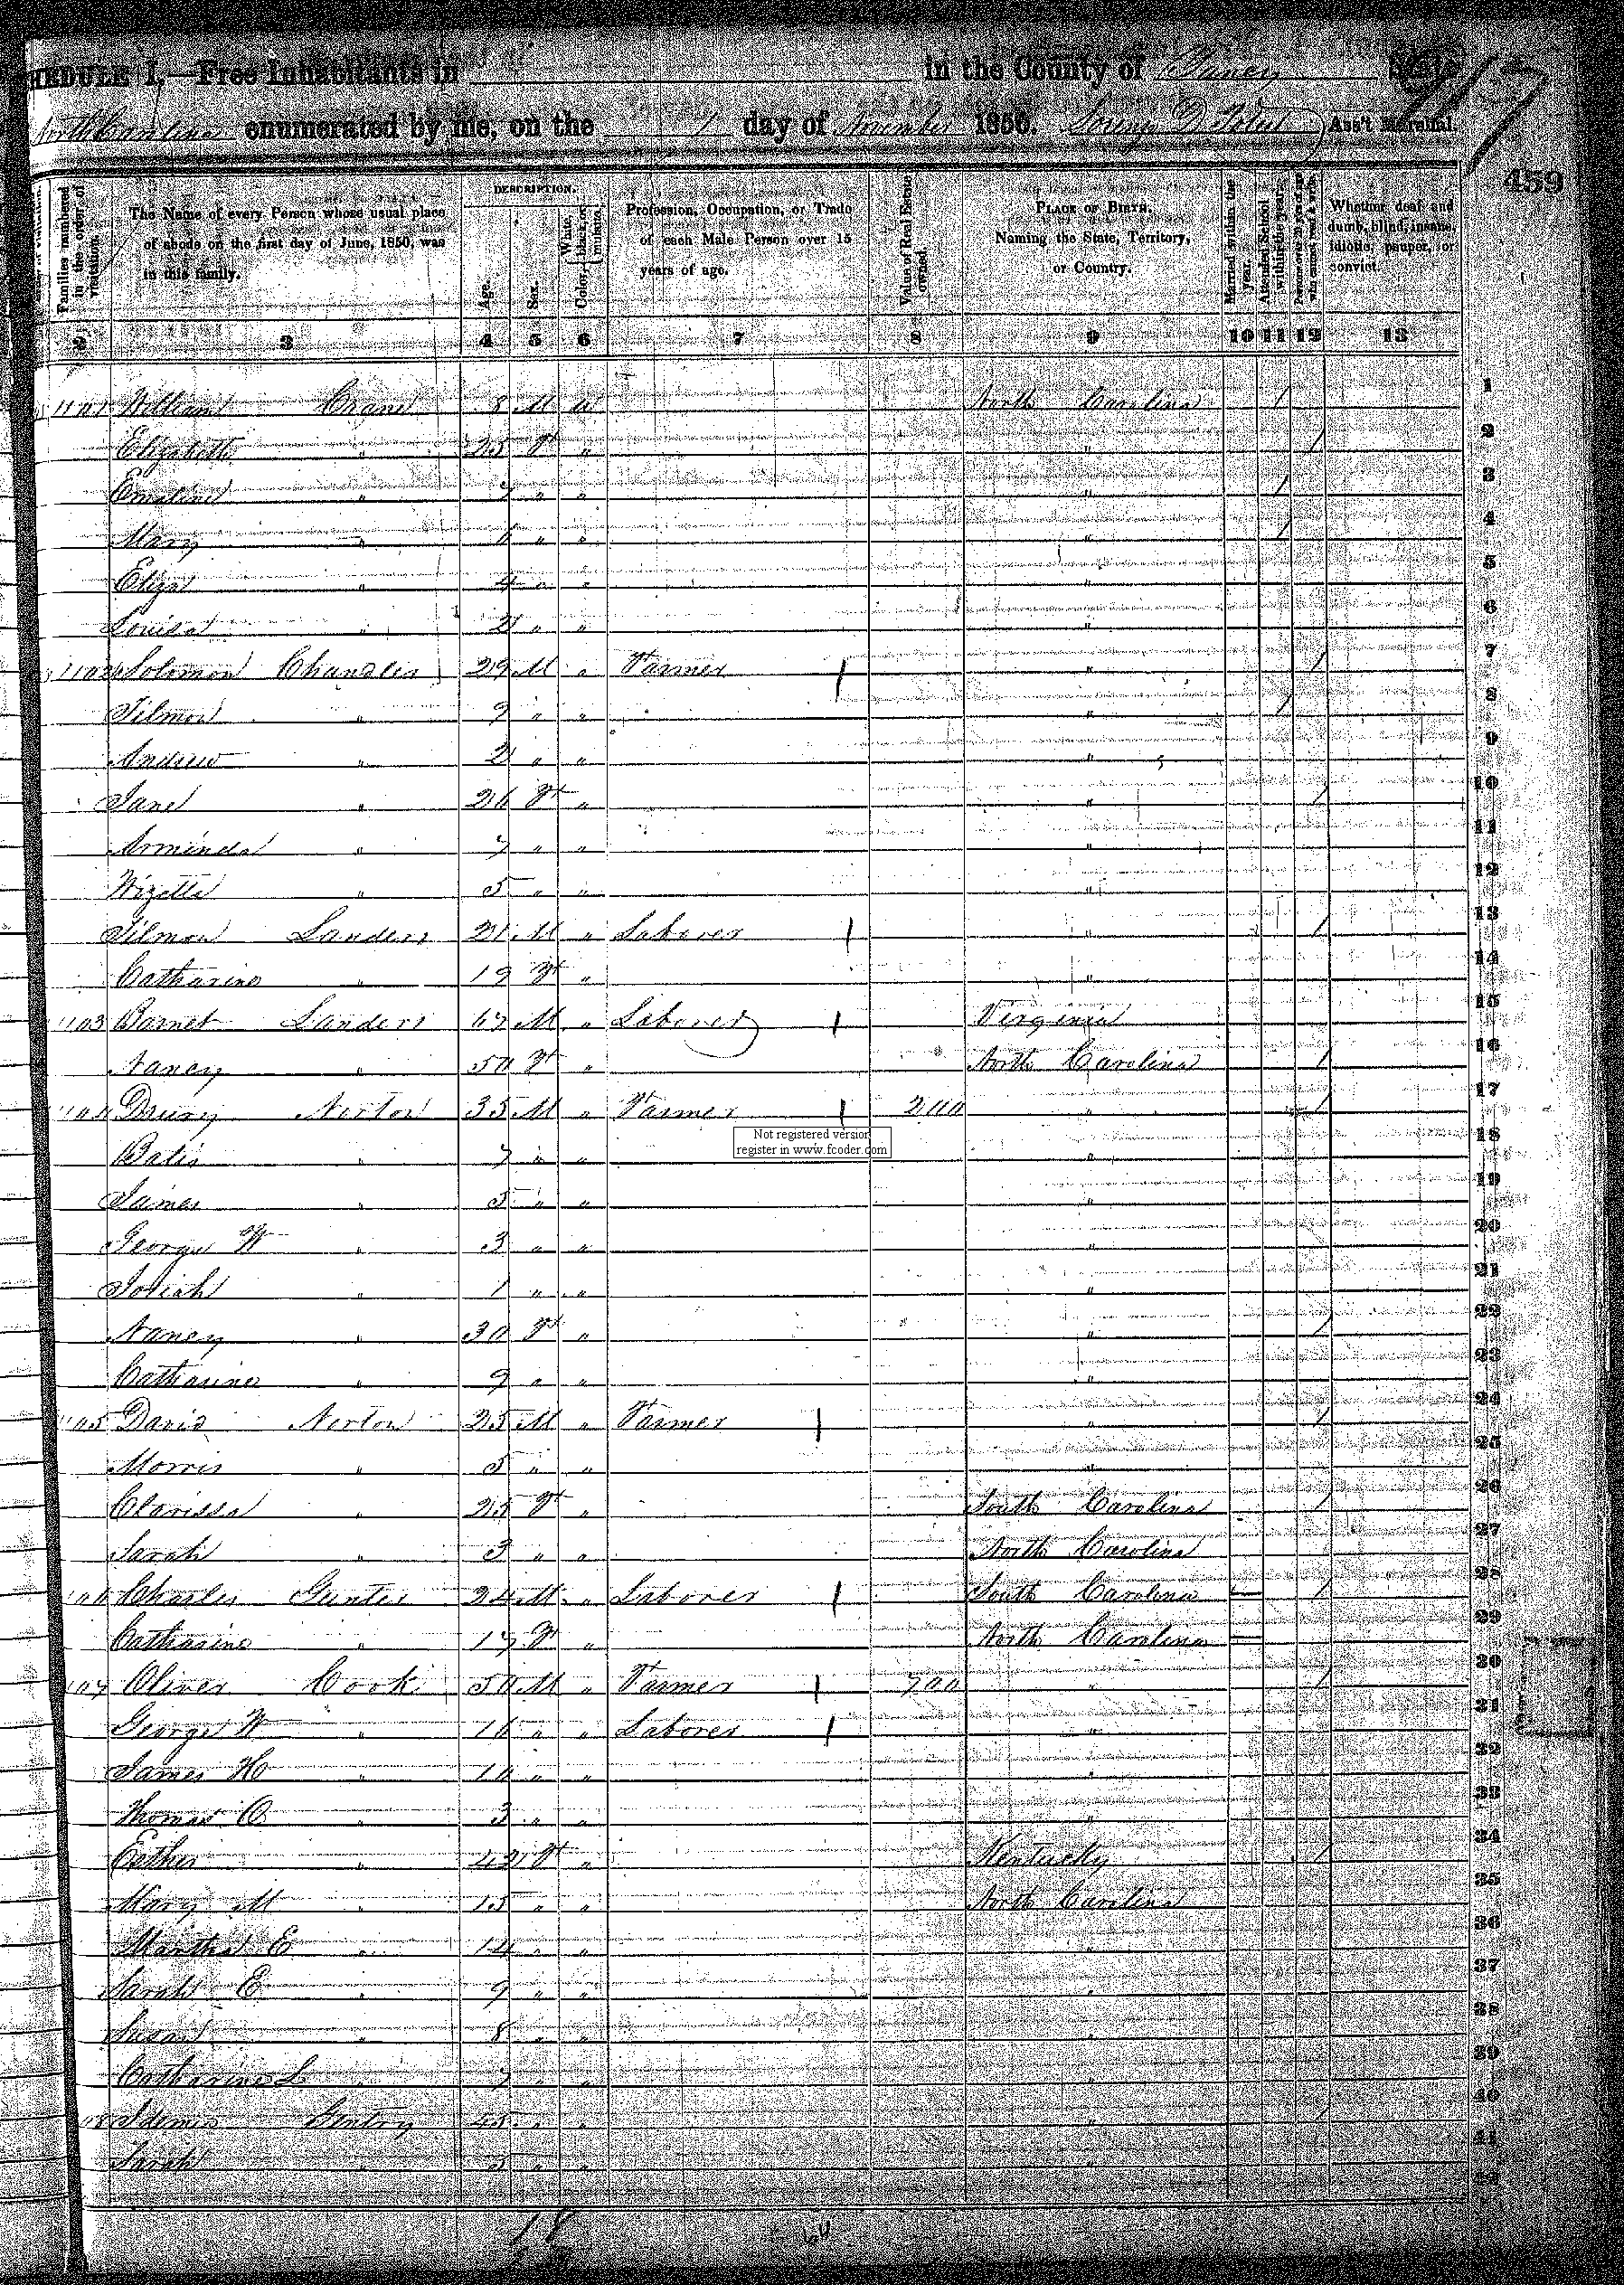 HEDULE I.—Free Inhabitants in in the County of Yancey State
North Carolina enumerated by me, on the 1 day of November 1850. Lorenzo D Ass't Marshal.
459
Families numbered in the order of visitation.
The Name of every Person whose usual place of abode on the first day of June, 1850, was in this family.
DESCRIPTION.
Age.
Sex.
Color, White, black, or mulatto.
Profession, Occupation, or Trade of each Male Person over 15 years of age.
Value of Real Estate owned.
PLACE OF BIRTH. Naming the State, Territory, or Country.
Married within the year.
Attended School within the year.
Persons over 20 y'rs of age who cannot read & write.
Whether deaf and dumb, blind, insane, idiotic, pauper, or convict.
2 3 4 5 6 7 8 9 10 11 12 13
1101 William Crane 8 M W North Carolina / 1
Elizabeth " 25 F " " / 2
Emaline " 7 " " " / 3
Mary " 6 " " " / 4
Eliza " 4 " " " 5
Louisa " 2 " " " 6
1102 Solomon Chandler 29 M " Farmer " / 7
Tilmon " 9 " " " / 8
Andrew " 2 " " " 9
Jane " 26 F " " / 10
Arminda " 7 " " " 11
" 5 " " " 12
Tilmon Landers 21 M " Laborer " / 13
Catharine " 19 F " " 14
1103 Barnet Landers 67 M " Laborer Virginia 15
Nancy " 50 F " North Carolina / 16
1104 Drury Norton 35 M " Farmer 200 " / 17
Not registered version
register in www.fcoder.com
Balis " 7 " " " 18
James " 5 " " " 19
George W " 3 " " " 20
Josiah " 1 " " " 21
Nancy " 30 F " " / 22
Catharine " 9 " " " 23
1105 David Norton 25 M " Farmer " / 24
Morris " 5 " " " 25
Clarissa " 25 F " South Carolina / 26
Sarah " 3 " " North Carolina 27
106 Charles Gunter 24 M " Laborer South Carolina / 28
Catharine " 17 F " North Carolina 29
107 Oliver Cook 50 M " Farmer 700 " / 30
George W " 16 " " Laborer " 31
James H " 10 " " " 32
Thomas O " 3 " " " 33
Esther " 42 F " Kentucky / 34
Mary M " 15 " " North Carolina 35
Martha E " 14 " " " 36
Sarah E " 9 " " " 37
Susan " 8 " " " 38
Catharine L " 7 " " " 39
108 Gentry 45 " " " / 40
Sarah " 5 " " " 41
42